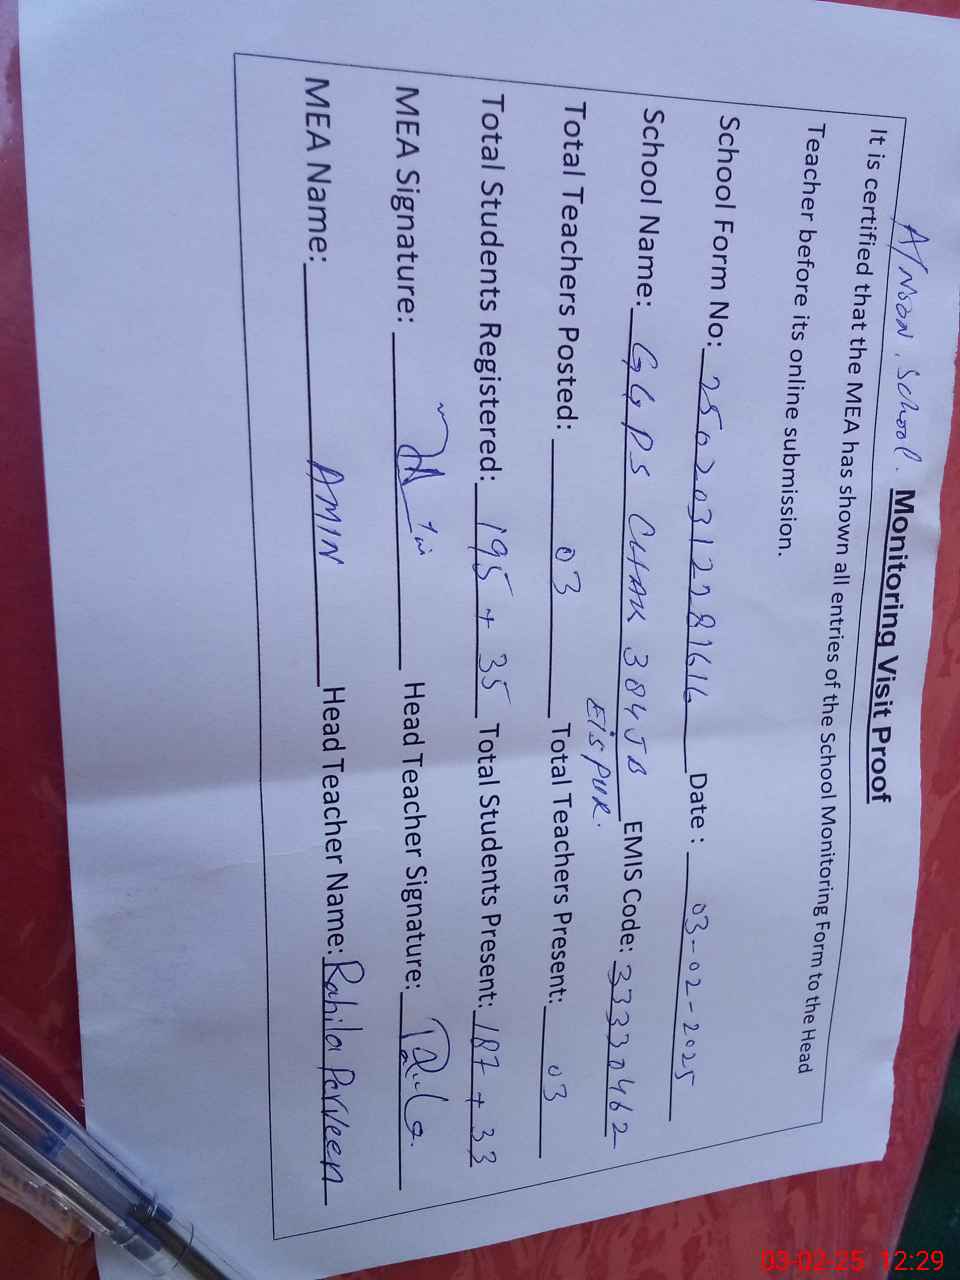 A/Noon. School. Monitoring Visit Proof
It is certified that the MEA has shown all entries of the School Monitoring Form to the Head
Teacher before its online submission.
School Form No: 25020312281616 Date : 03-02-2025
School Name: GGPS CHAK 384 JB EMIS Code: 33330462
EiSPUR.
Total Teachers Posted: 03 Total Teachers Present: 03
Total Students Registered: 195 + 35 Total Students Present: 187 + 33
MEA Signature: Head Teacher Signature:
MEA Name: AMIN Head Teacher Name: Rahila Parveen
03-02-25 12:29